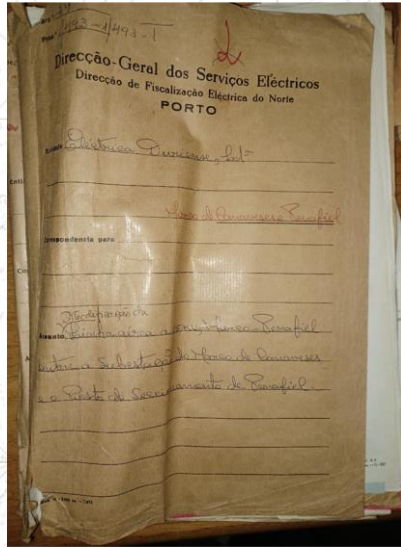 Direcção-Geral dos Serviços Eléctricos
Direcção de Fiscalização Eléctrica do Norte
PORTO
Eléctrica Duriense, Lda
Marco de Canaveses Penafiel
Correspondencia para
Modificação da
Assunto, Linha a Marco Penafiel
entre a Subestação de Marco de Canaveses
e o Posto de Seccionamento de Penafiel.